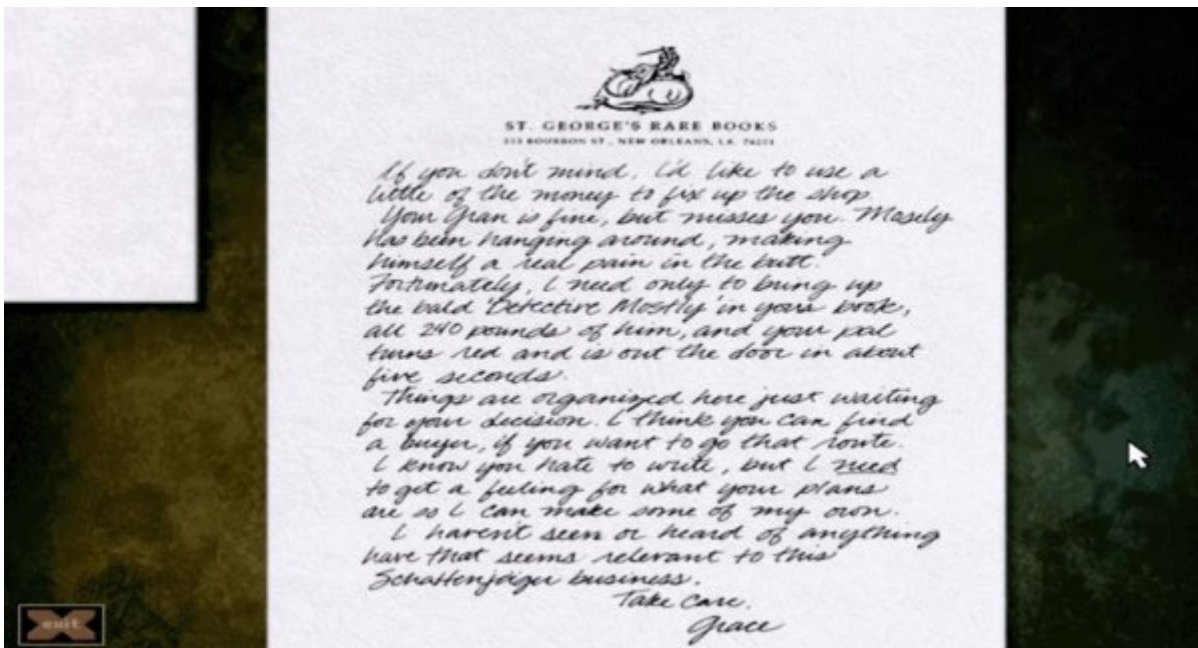 ST. GEORGE'S RARE BOOKS
BOURBON ST., NEW ORLEANS, LA.
If you don't mind, I'd like to use a
little of the money to fix up the shop.
Your Gran is fine, but misses you. Mosely
has been hanging around, making
himself a real pain in the butt.
Fortunately, I need only to bring up
the bald 'Detective Mostly' in your book,
all 240 pounds of him, and your pal
turns red and is out the door in about
five seconds.
Things are organized here just waiting
for your decision. I think you can find
a buyer, if you want to go that route.
I know you hate to write, but I need
to get a feeling for what your plans
are so I can make some of my own.
I haven't seen or heard of anything
here that seems relevant to this
Schattenjäger business.
Take Care,
Grace
exit